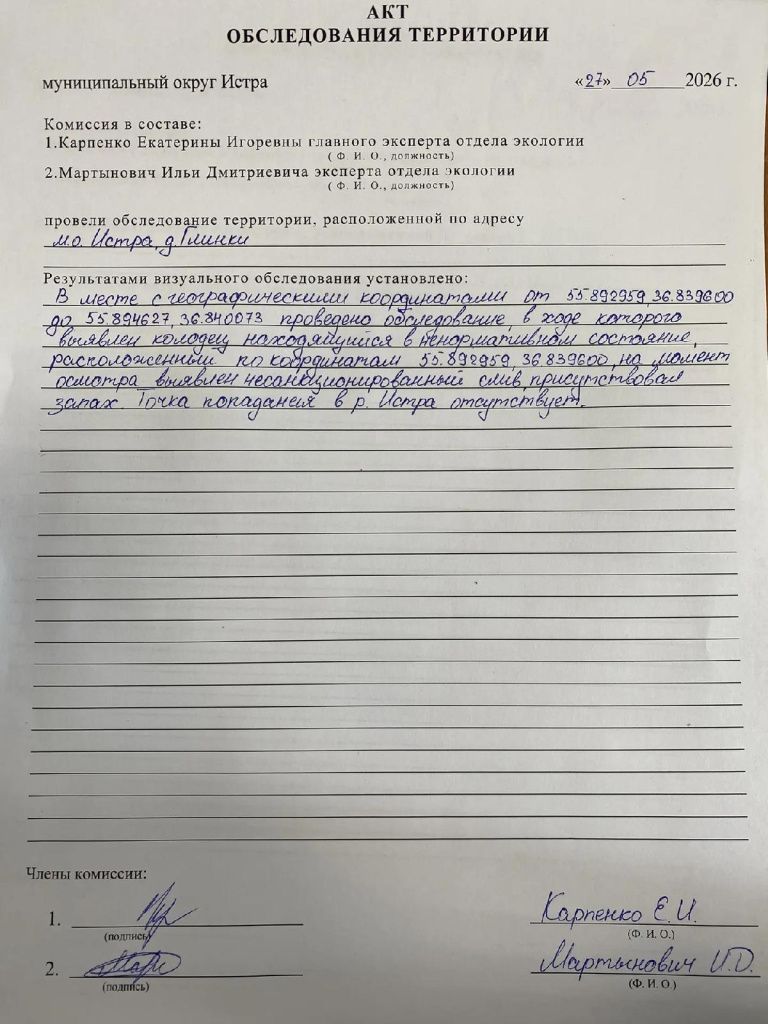 АКТ
ОБСЛЕДОВАНИЯ ТЕРРИТОРИИ
муниципальный округ Истра «27» 05 2026 г.
Комиссия в составе:
1.Карпенко Екатерины Игоревны главного эксперта отдела экологии
( Ф. И. О., должность)
2.Мартынович Ильи Дмитриевича эксперта отдела экологии
( Ф. И. О., должность)
провели обследование территории, расположенной по адресу
м.о. Истра, д. Глинки
Результатами визуального обследования установлено:
В месте с географическими координатами от 55.892959, 36.839600
до 55.894627, 36.840073 проведено обследование, в ходе которого
выявлен колодец находящийся в ненормативном состояние,
расположенный по координатам 55.892959, 36.839600, на момент
осмотра выявлен несанкционированный слив, присутствовал
запах. Точка попадания в р. Истра отсутствует.
Члены комиссии:
1. Карпенко Е.И.
(подпись) (Ф. И. О.)
2. Мартынович И.Д.
(подпись) (Ф. И. О )